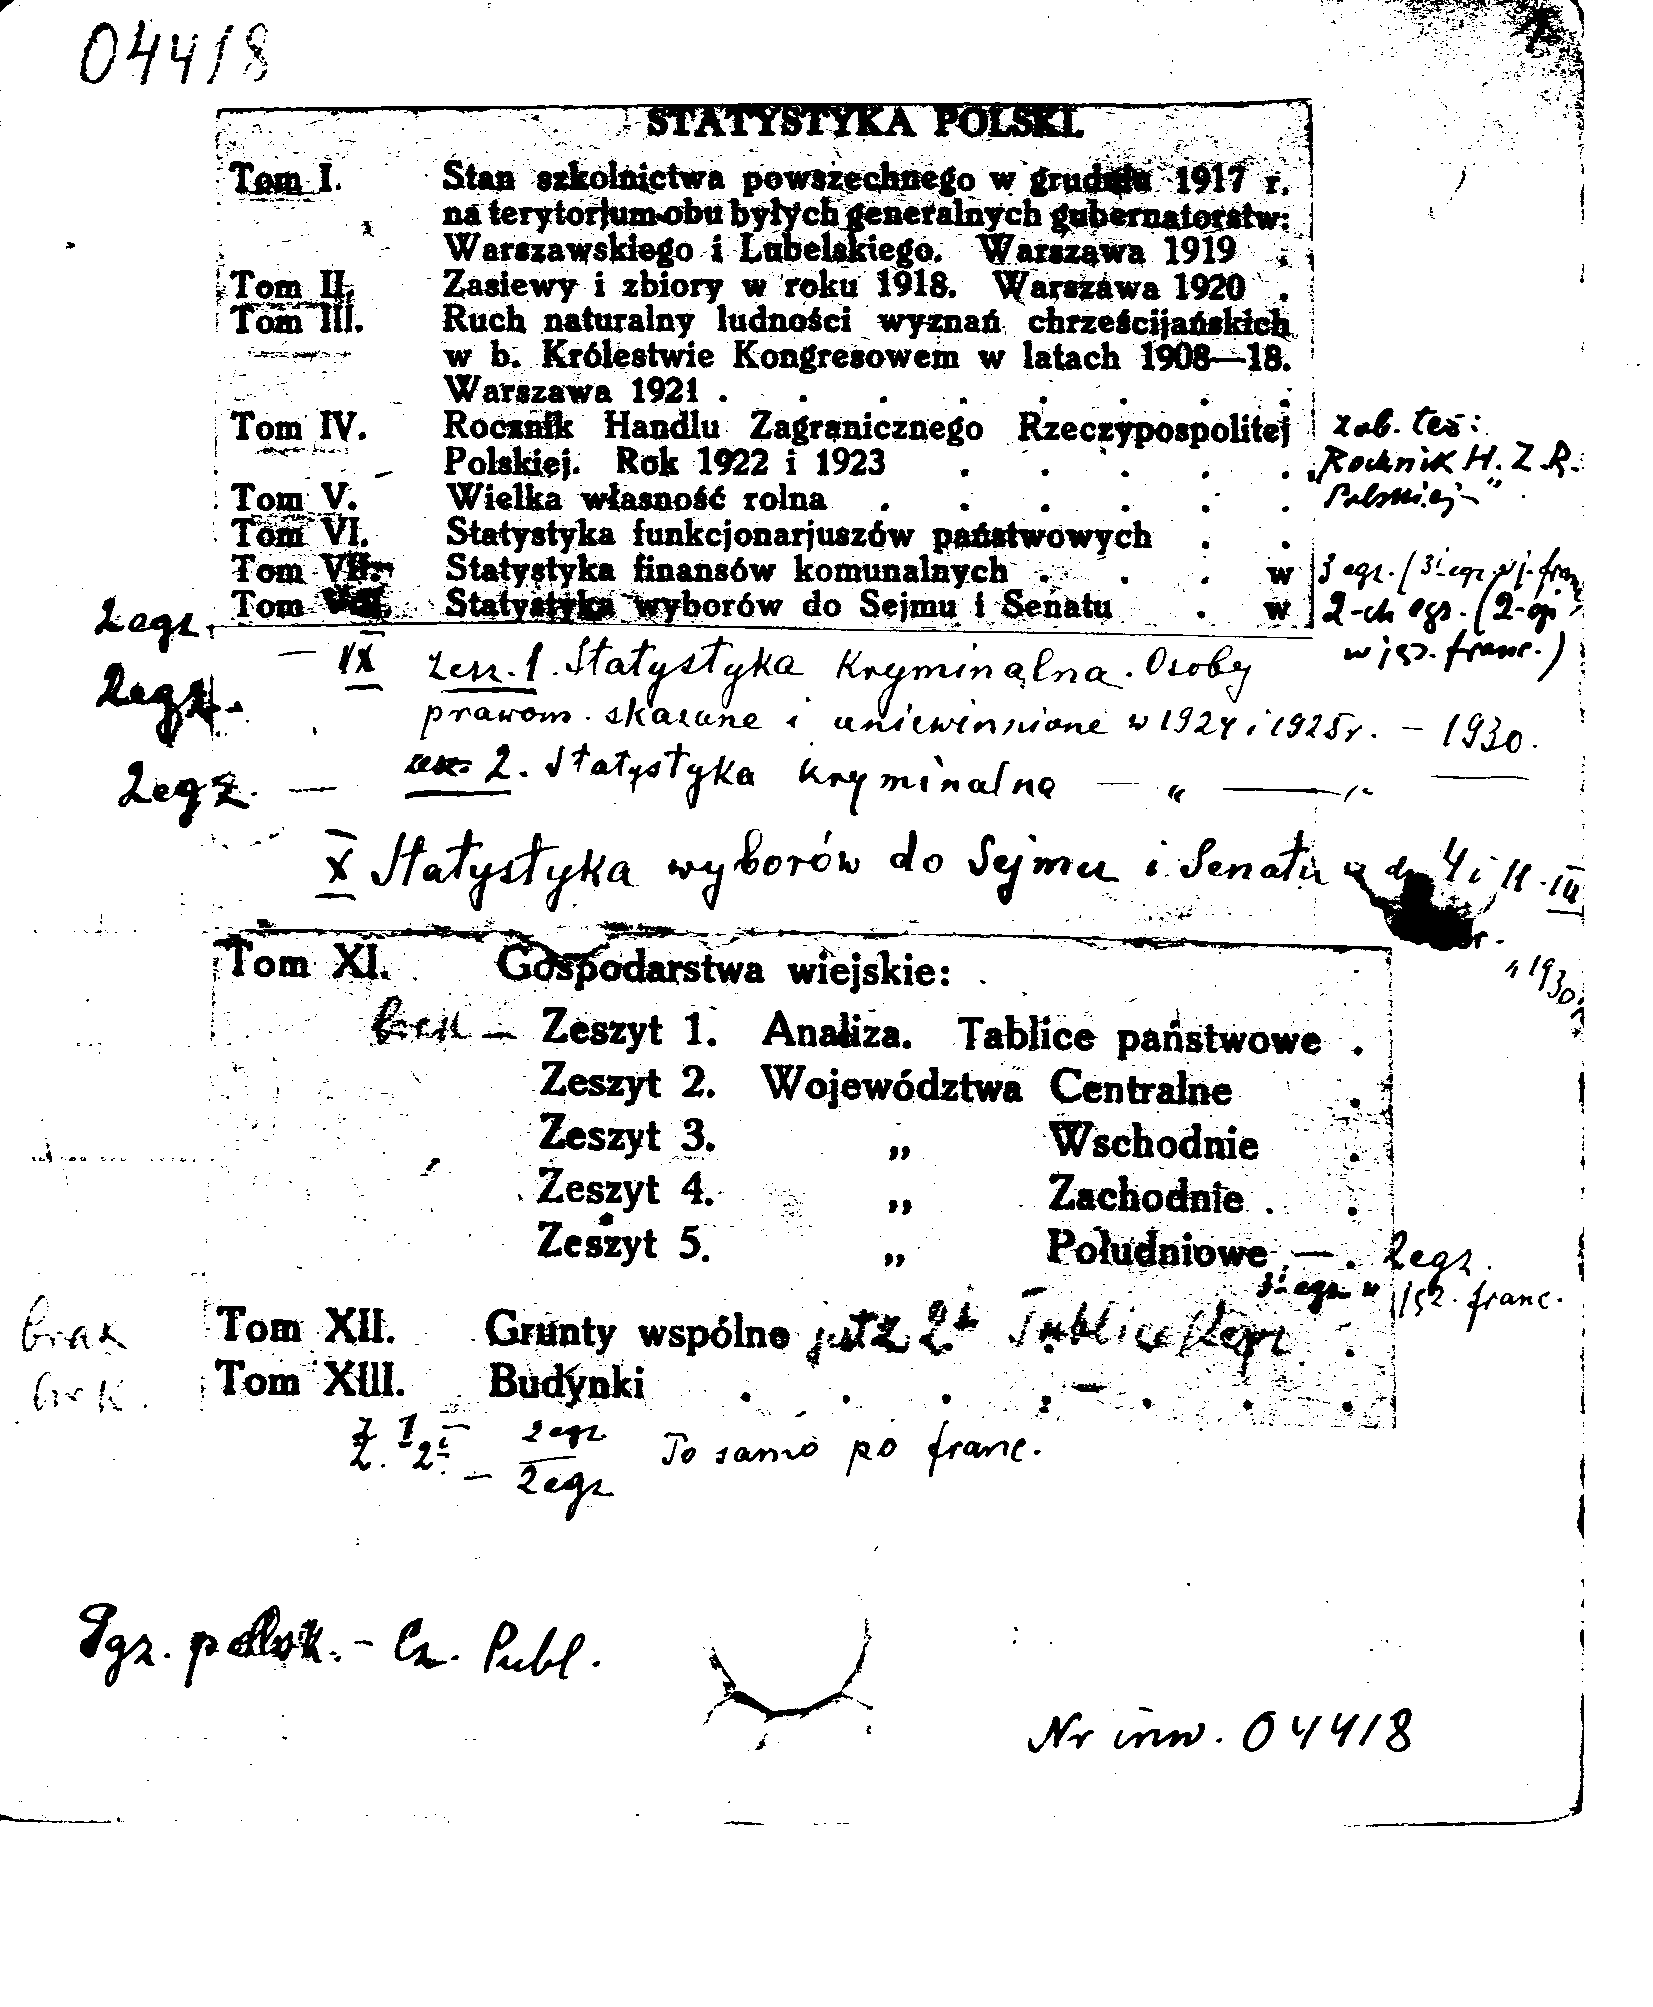 04418
STATYSTYKA POLSKI.
Tom I. Stan szkolnictwa powszechnego w grudniu 1917 r.
na terytorjum obu byłych generalnych gubernatorstw:
Warszawskiego i Lubelskiego. Warszawa 1919 .
Tom II. Zasiewy i zbiory w roku 1918. Warszawa 1920 .
Tom III. Ruch naturalny ludności wyznań chrześcijańskich
w b. Królestwie Kongresowem w latach 1908—18.
Warszawa 1921 . . . . . . . .
Tom IV. Rocznik Handlu Zagranicznego Rzeczypospolitej zob. też:
Polskiej. Rok 1922 i 1923 . . . . . „Rocznik H. Z. R.
Tom V. Wielka własność rolna . . . . . . Polskiej"
Tom VI. Statystyka funkcjonarjuszów państwowych . .
Tom VII. Statystyka finansów komunalnych . . . w 3 egz. (3-i egz. w j. franc.
2 egz. Tom VIII. Statystyka wyborów do Sejmu i Senatu . w 2-ch egz. (2-gi
w jęz. franc.)
2 egz. — IX zesz. 1. Statystyka Kryminalna. Osoby
prawom. skazane i uniewinnione w 1924 i 1925 r. — 1930.
2 egz. — zesz. 2. Statystyka kryminalna — „ — „
X Statystyka wyborów do Sejmu i Senatu 4 i 11 . III
r.
1930 r.
Tom XI. Gospodarstwa wiejskie:
brak — Zeszyt 1. Analiza. Tablice państwowe .
Zeszyt 2. Województwa Centralne .
Zeszyt 3. „ Wschodnie .
Zeszyt 4. „ Zachodnie . .
Zeszyt 5. „ Południowe — . 2 egz.
3-i egz. w jęz. franc.
brak Tom XII. Grunty wspólne jest z. 2-i Tablice
brak. Tom XIII. Budynki . . . . . . .
Z. 1 — 2 egz
Z. 2 — 2 egz To samo po franc.
Egz. — Cz. Publ.
Nr inw. 04418